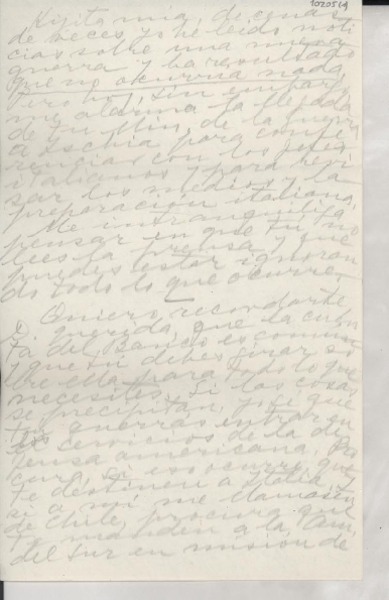 1020514
Hijita mía, de cenas
de veces yo he leído noti
cias sobre una nueva
guerra y ha resultado
que no ocurría nada.
Pero hoy, sin embargo,
me alarma la llegada
de un Min. de la guerra
a Ischia para confe
rencias con los jefes
italianos y para revi
sar los medios y la
preparación italiana.
Me intranquiliza
pensar en que tú no
lees la prensa y que
puedes estar ignoran
do todo lo que ocurre.
Quiero recordarte,
querida, que la cuen
ta del Banco es común
y que tú debes girar so
bre ella para todo lo que
necesites. Si las cosas
se precipitan, yo sé que
tú querrás entrar en
los servicios de la de
fensa americana. Pro
cura, si eso ocurre, que
te destinen a Italia. Y
si a mí me llamasen
de Chile, procura que
te manden a la Am.
del Sur en misión de